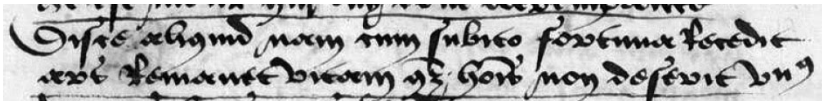 Disce aliquid nam cum subito fortuna Recedit
ars Remanet vitam qꝫ hoīs non deserit vnqȝ